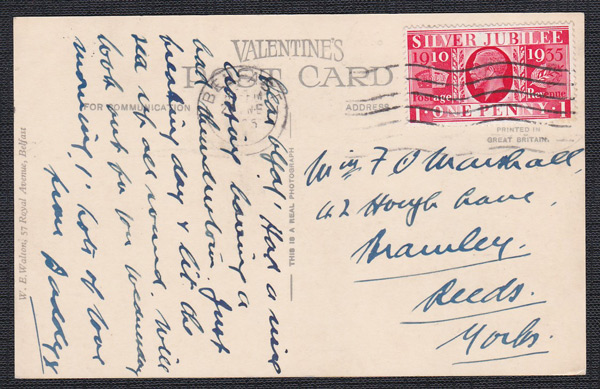 VALENTINE'S
POST CARD
FOR COMMUNICATION
ADDRESS
SILVER JUBILEE
1910 1935
Postage Revenue
1 · ONE PENNY · 1
PRINTED IN
GREAT BRITAIN.
THIS IS A REAL PHOTOGRAPH
W. E. Walton, 57 Royal Avenue, Belfast
Dear Had a nice
crossing having a
bad thunderstorm. Just
breaking day & the
sea all round. Will
look out for you Wednesday
morning, lots of love
from Daddy x
Miss F O Marshall,
42 Hough Lane,
Bramley.
Leeds.
Yorks.